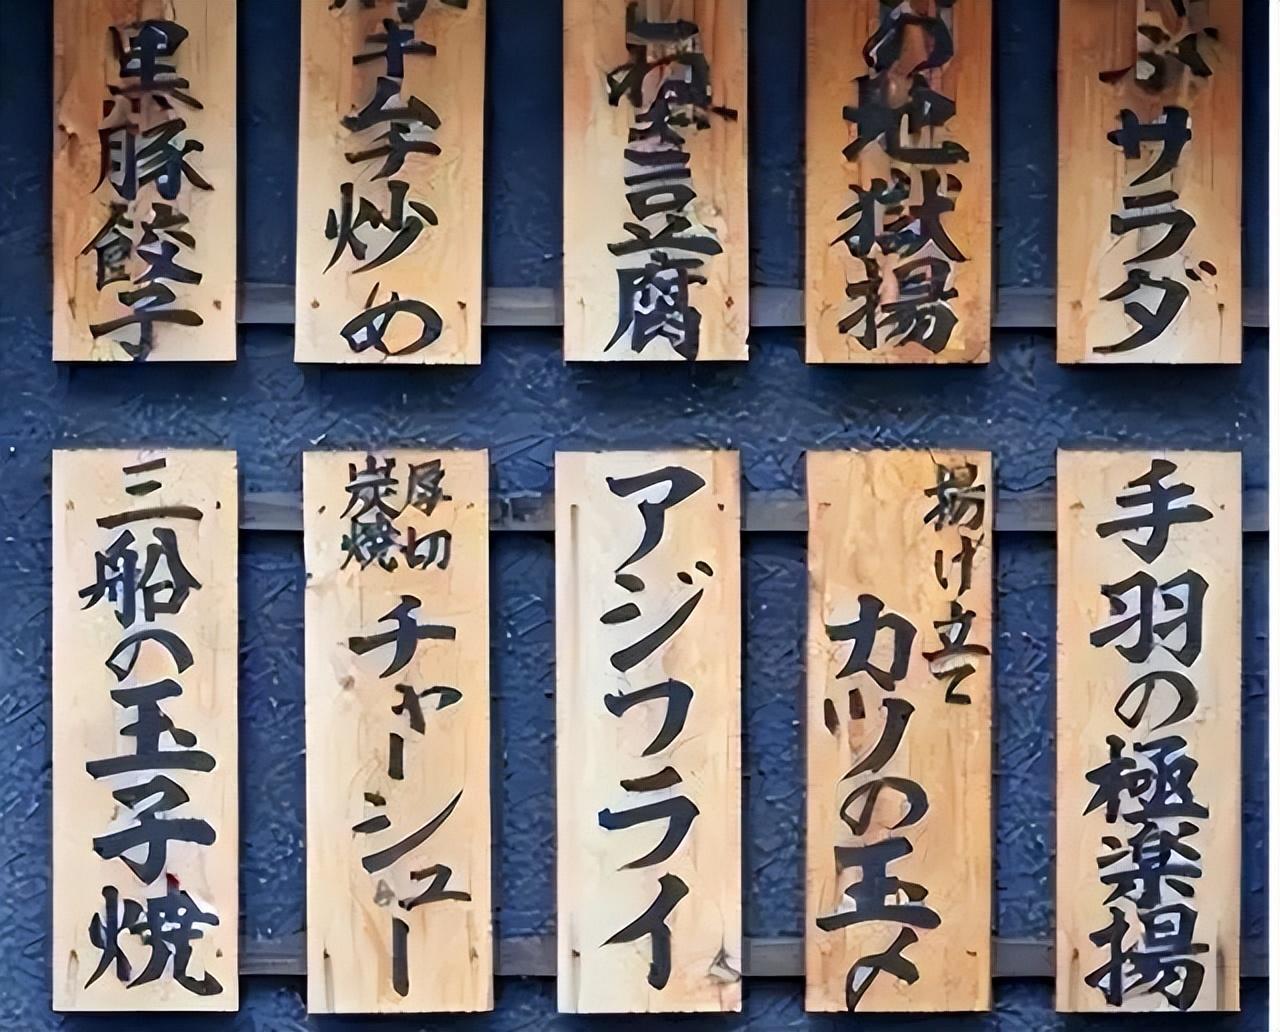 ぶサラダ
の地獄揚
豆腐
キムチ炒め
黒豚餃子
手羽の極楽揚
揚げ立て
カツの玉〆
アジフライ
厚切
炭焼
チャーシュー
三船の玉子焼